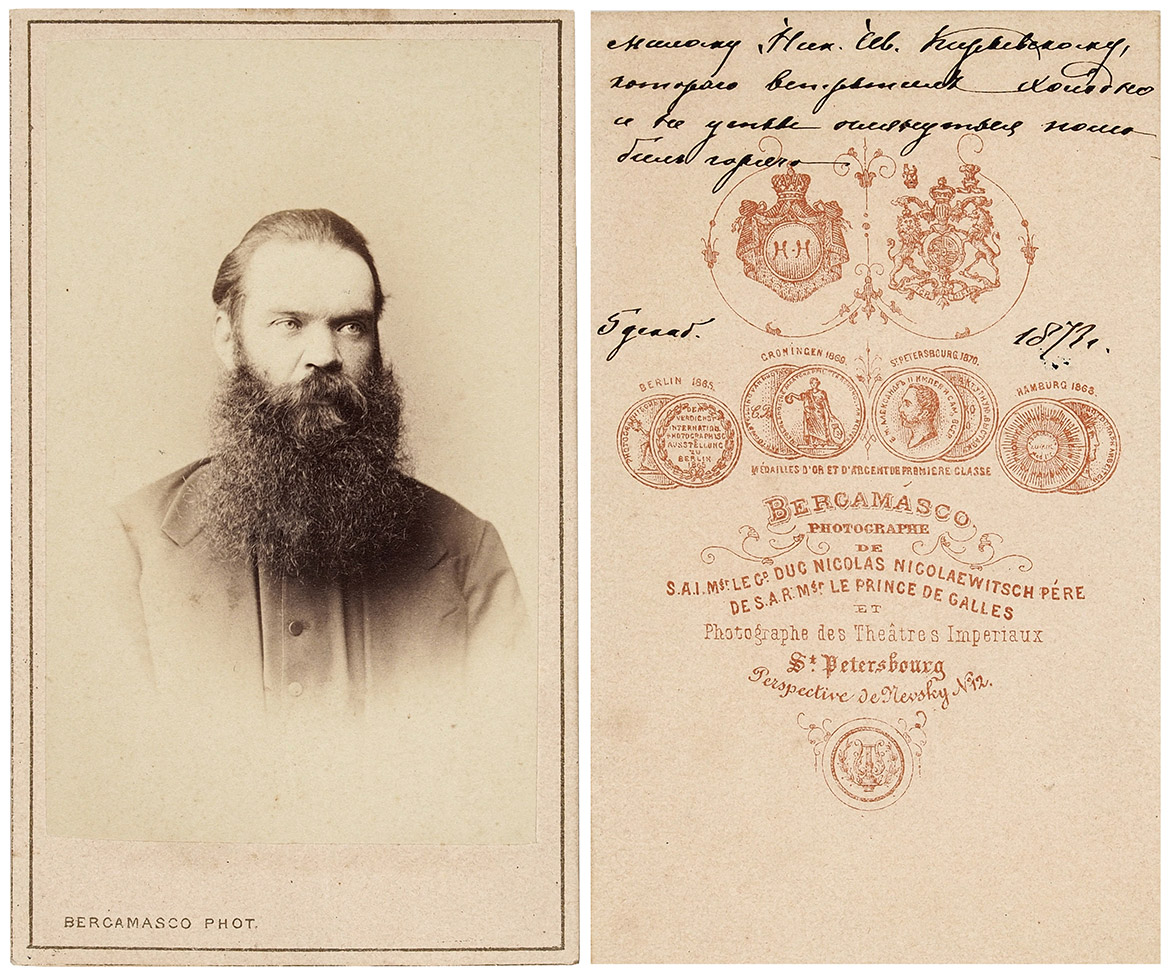 BERGAMASCO PHOT.
милому Ник. Ив.
котораго встрѣтилъ холодно
и не успѣлъ оглянуться
билъ горячо
H·H
5 декаб. 187
BERLIN 1865.
GRONINGEN 1869.
ST PETERSBOURG. 1870.
HAMBURG 1868.
DEM
VERDIENST
INTERNATION.
PHOTOGRAPHISC
AUSSTELLUNG
ZU
BERLIN
1865
MÉDAILLES D'OR ET D'ARGENT DE PREMIÈRE CLASSE
BERGAMASCO
PHOTOGRAPHE
DE
S.A.I. Msr. LE Gd. DUC NICOLAS NICOLAEWITSCH PÉRE
DE S.A.R. Msr LE PRINCE DE GALLES
ET
Photographe des Theâtres Imperiaux
St Petersbourg
Perspective de Nevsky No12.